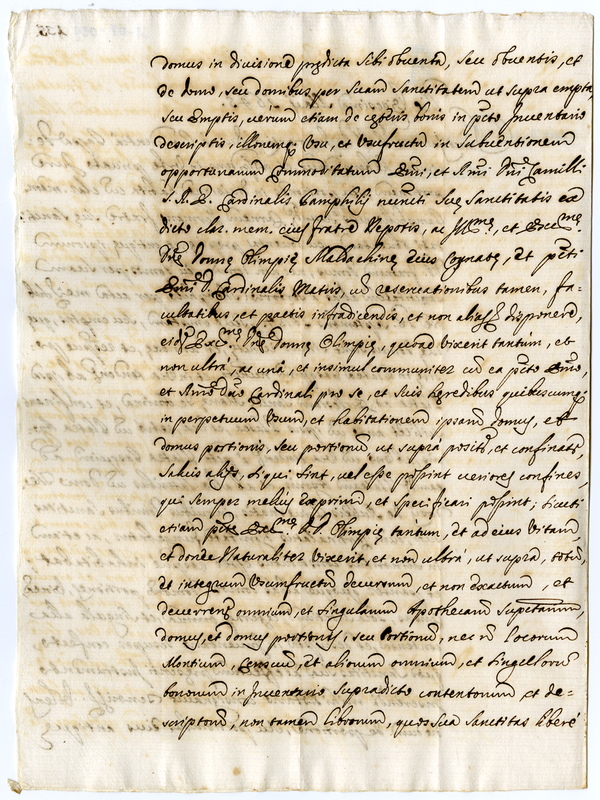 domus in divisione prędicta sibi obventa, seu obventis, et
de domo, seu domibus per Suam Sanctitatem ut supra empta,
seu emptis, verum etiam de cęteris bonis in pcto Inventario
descriptis, illorumq3 Usu, et Usufructu in Subventionem
opportunarum Commoditatum Emi, et Rmi Dni Camilli
S. R. E. Cardinalis Pamphilij nuncti Suę Sanctitatis ex
dicto clar. mem. eius fratre Nepotis, ac Illme, et Exccme
Dnę Donnę Olimpię Maldachinę eius Cognatę, et pcti
Emi D. Cardinalis Matris, cū reservationibus tamen, fa-
cultatibus, et pactis infradicendis, et non alias disponere,
eidē Exme Dnę Donnę Olimpię, quoad vixerit tantum, et
non ultrá, ac uná, et insimul communiter cū ea pcto Emo,
et Rmo Dno Cardinali pro se, et suis hęredibus quibuscumq3
in perpetuum Usum, et habitationem ipsarū domus, et
domus portionis, seu portionū, ut suprá positę, et confinatę,
salvis alijs, si qui sint, vel esse possint veriores confines,
qui semper melius exprimi, et specificari possint; sicuti
etiam pctę Excme D. D. Olimpię tantum, et ad eius Vitam,
et donec Naturaliter vixerit, et non ultrá, ut suprá, totū,
et integrum Usumfructū decursum, et non exactum, et
decurrenę omnium, et singularum Apothecarū supctarum,
domus, et domus portionis, seu Portionū, nec nō locorum
Montium, Censuū, et aliorum omnium, et singulorū
bonorum in Inventario supradicto contentorum et de-
scriptorū, non tamen librorum, quos sua Sanctitas liberé